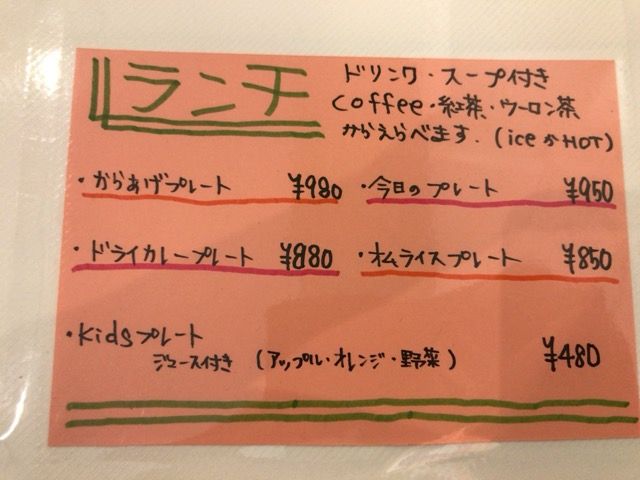 ランチ
ドリンク・スープ付き
coffee・紅茶・ウーロン茶
からえらべます. (ice か HOT)
・からあげプレート ¥980
・今日のプレート ¥950
・ドライカレープレート ¥880
・オムライスプレート ¥850
・kidsプレート
ジュース付き (アップル・オレンジ・野菜) ¥480